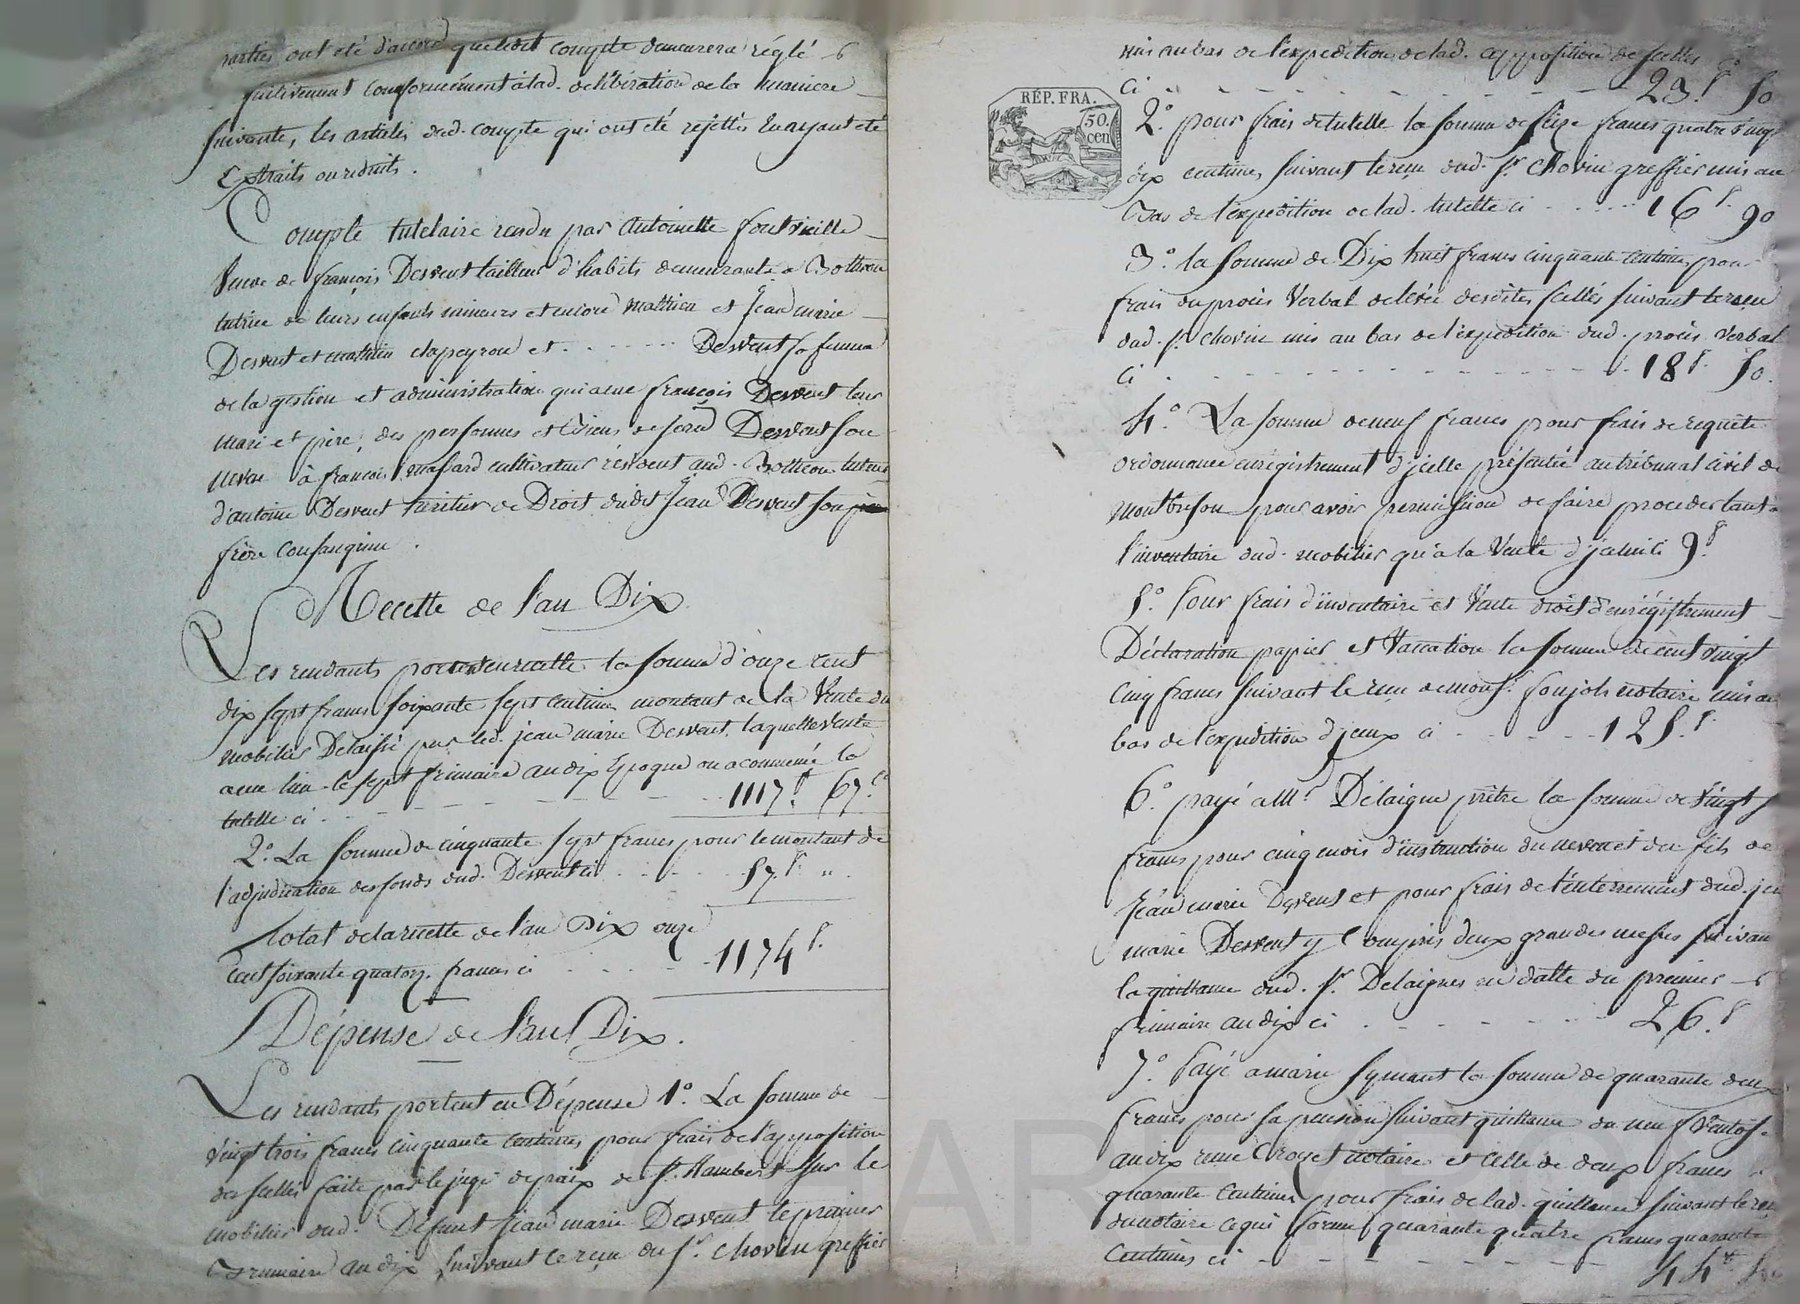 parties ont été d'accord que ledit compte demeurera réglé
suivement conformément à lad. délibération de la maniere
suivante, les articles dud. compte qui ont été rejettés en ayant été
Extraits ou réduits.
Compte tutelaire rendu par Antoinette fontvieille
veuve de françois Dervent tailleur d'habits demeurante a Bothéon
tutrice de leurs enfants mineurs et encore Mathieu et Jean marie
Dervent et mathieu clapeyron et . . . . . . Dervent sa femme
de la gestion et administration qu'a eue françois Dervent leur
mari et pere, des personnes et biens de feu Dervent son
neveu à françois massard cultivateur résident aud. Bothéon tuteur
d'antoine Dervent héritier de Droit dudit Jean Dervent son
frère consanguin.
Recette de l'an Dix
Les rendants portent en recette la somme d'onze cent
dix sept francs soixante sept centimes montant de la Vente du
mobilier Delaissé par led. jean marie Dervent, laquelle vente
a eue lieu le sept frimaire an dix Epoque ou a commencé la
tutelle ci . . . 1117.f 67.c
2.° La somme de cinquante sept francs pour le montant de
l'adjudication des fonds dud. Dervent ci . . . 57.f "
Total de la recette de l'an Dix onze
cent soixante quatorz. francs ci . . . 1174f.
Dépense de l'an Dix.
Les rendants portent en Dépense 1.° La somme de
vingt trois francs cinquante centimes pour frais de l'apposition
des scellés faite par le juge de paix de St. Rambert sur le
mobilier dud. Défunt jean marie Dervent le premier
Brumaire an dix suivant le reçu du Sr. Chovin greffier
mis au bas de l'expedition de lad. apposition de scellés
Ci . . . 23.f 50
RÉP. FRA.
50.
cen
2.° pour frais de tutelle la somme de seize francs quatre vingt
dix centimes suivant le reçu dud. Sr. Chovin greffier mis au
bas de l'expedition de lad. tutelle ci . . . 16f. 90
3.° la somme de Dix huit francs cinquante centimes pour
frais du procès Verbal de levée desdites scellés suivant le reçu
dud. Sr. chovin mis au bas de l'expedition dud. procès verbal
Ci . . . 18f. 50.
4.° La somme de neuf francs pour frais de requête
ordonnance enregistrement d'icelle présentée au tribunal civil de
Montbrison pour avoir permission de faire proceder tant à
l'inventaire dud. mobilier qu'à la Vente d'icelui ci 9.f
5.° Pour frais d'inventaire et Vente droit d'enrégistrement
Déclaration papier et Vaccation la somme de cent vingt
cinq francs suivant le reçu de monsr. notaire mis au
bas de l'expedition d'iceux ci . . . 125.f
6.° payé a Mr. Délaigue prêtre la somme de vingt
francs pour cinq mois d'instruction du neveu et du fils de
Jean marie Dervent et pour frais de l'enterrement dud. jean
marie Dervent y compris deux grandes messes suivant
la quittance dud. Sr. Delaigues en datte du premier
frimaire an dix ci . . . 26.f
7.° Payé a marie la somme de quarante deux
francs pour sa pension suivant quittance du neuf Ventose
an dix reçue Croyet notaire et celle de deux francs
quarante centimes pour frais de lad. quittance suivant le reçu
du notaire ce qui forme quarante quatre francs quarante
Centimes ci . . . 44.tt 40